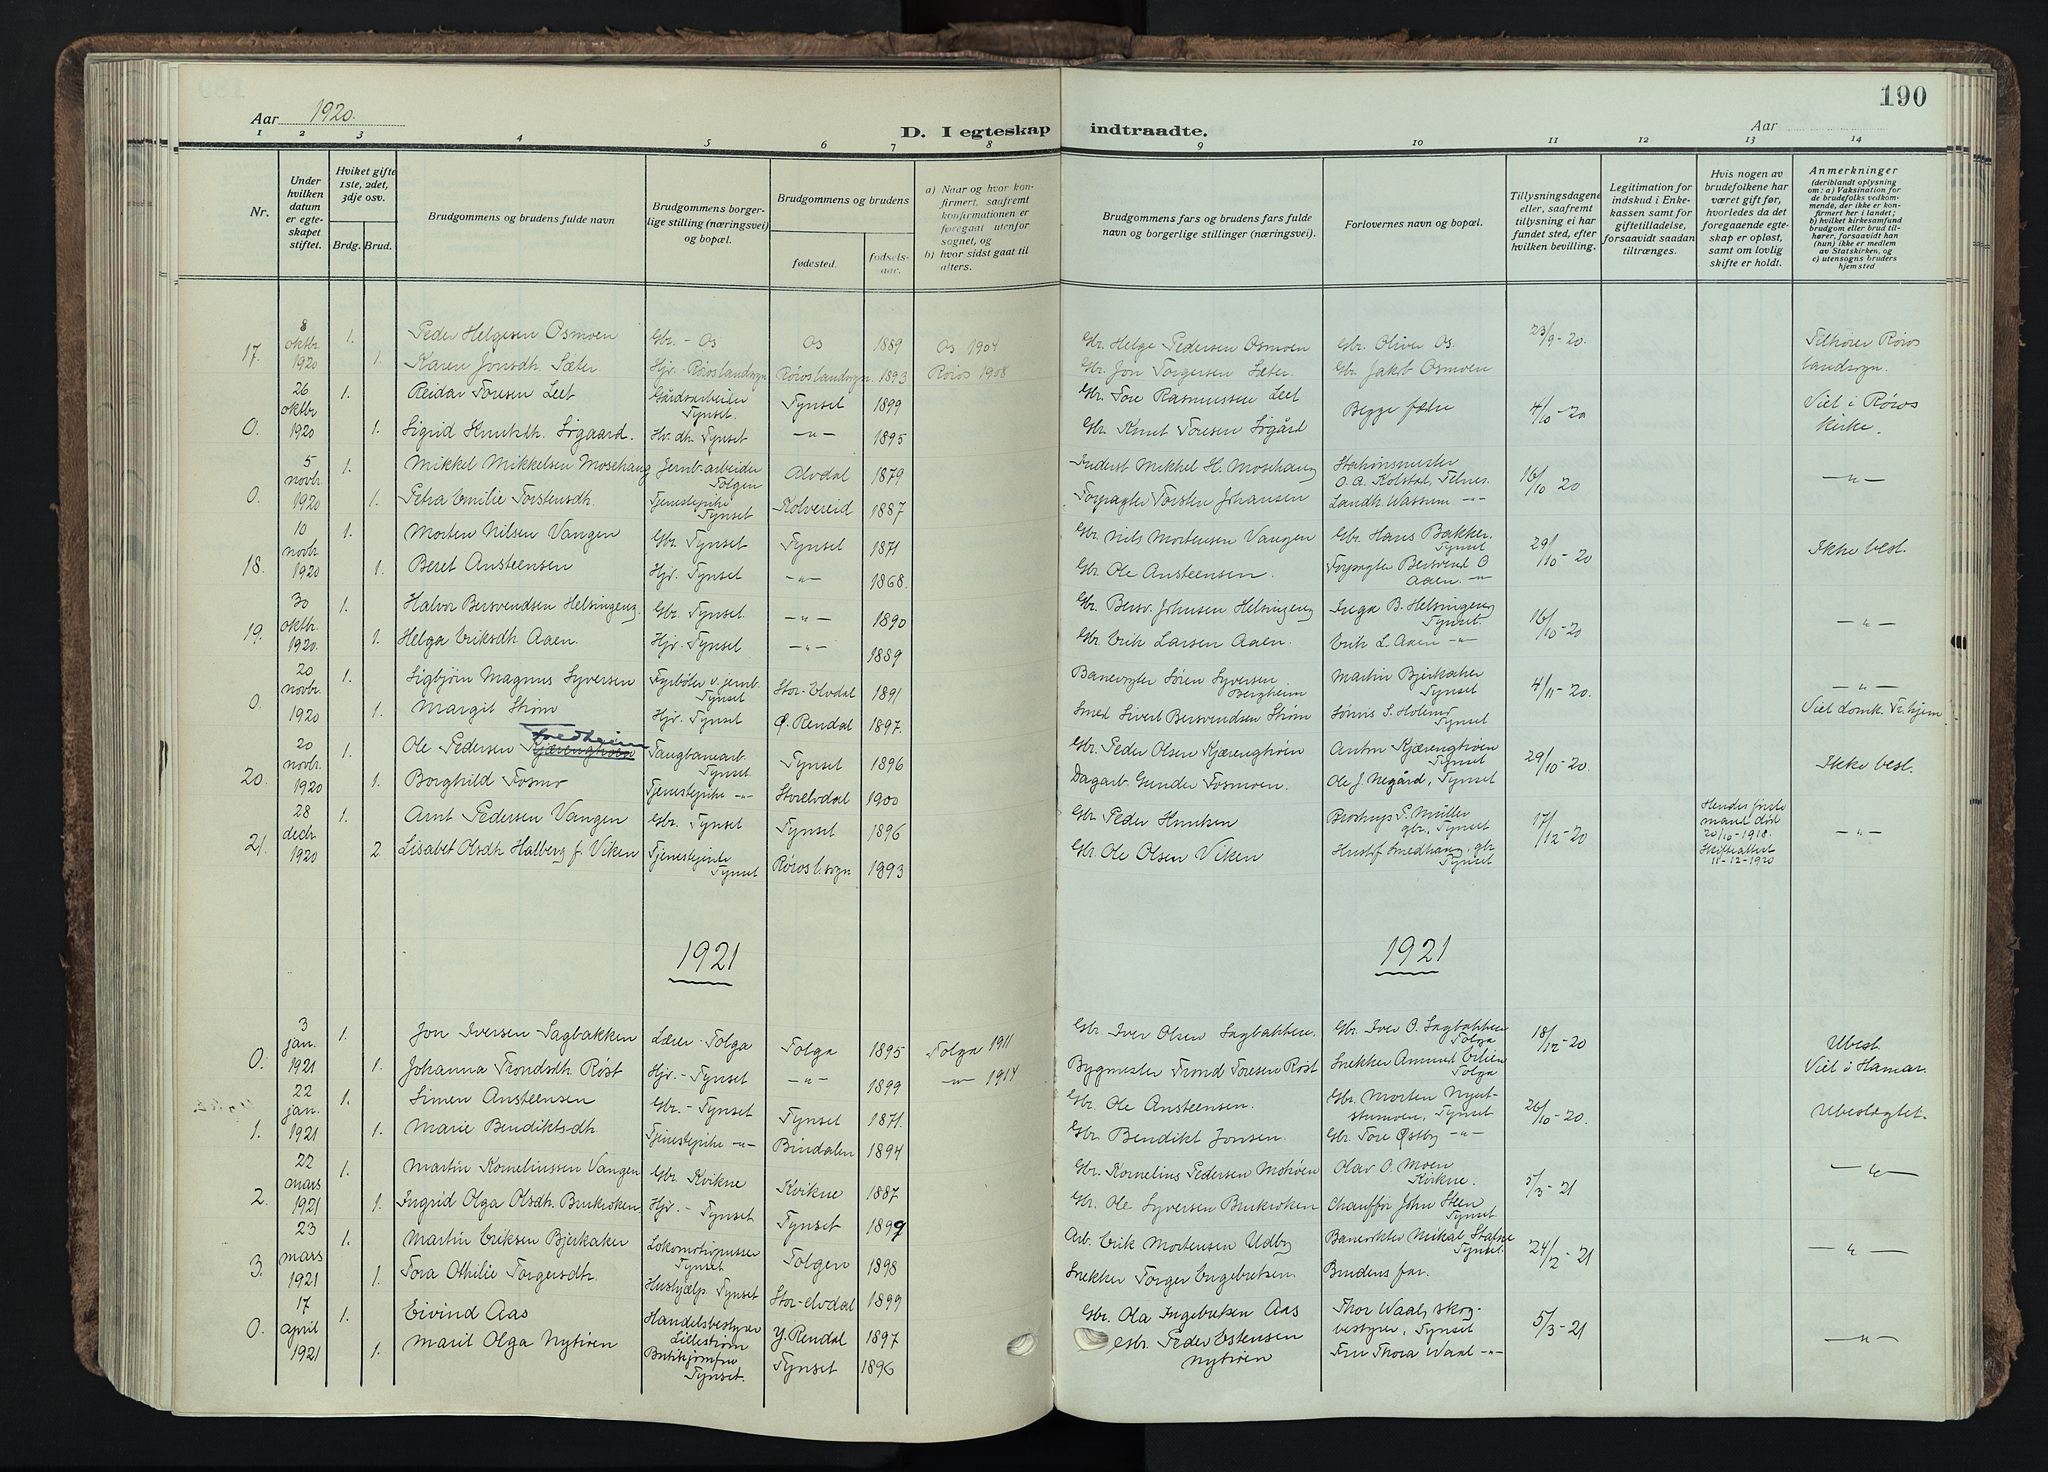 190
Aar 1920.
D. I egteskap indtraadte.
Aar
1 2 3 4 5 6 7 8 9 10 11 12 13 14
Nr.
Under hvilken datum er egteskapet stiftet.
Hvilket gifte 1ste, 2det, 3dje osv.
Brdg. Brud.
Brudgommens og brudens fulde navn
Brudgommens borgerlige stilling (næringsvei) og bopæl.
Brudgommens og brudens
fødested.
fødsels-aar.
a) Naar og hvor konfirmert, saafremt konfirmationen er foregaat utenfor sognet, og
b) hvor sidst gaat til alters.
Brudgommens fars og brudens fars fulde navn og borgerlige stillinger (næringsvei).
Forlovernes navn og bopæl.
Tillysningsdagene eller, saafremt tillysning ei har fundet sted, efter hvilken bevilling.
Legitimation for indskud i Enkekassen samt for giftetilladelse, forsaavidt saadan tiltrænges.
Hvis nogen av brudefolkene har været gift før, hvorledes da det foregaaende egteskap er opløst, samt om lovlig skifte er holdt.
Anmerkninger
(deriblandt oplysning om: a) Vaksination for de brudefolks vedkommende, der ikke er konfirmert her i landet; b) hvilket kirkesamfund brudgom eller brud tilhører, forsaavidt han (hun) ikke er medlem av Statskirken, og c) utensogns bruders hjemsted
17. 8 oktbr. 1920 1. Peder Helgesen Osmoen Gbr. - Os Os 1889 Os 1904 Gbr. Helge Pedersen Osmoen Gbr. Oliver Os. 23/9-20. Tilhører Røros landsogn.
1. Karen Jonsdh. Sæter Hjr. - Røros landsogn Røros landsogn 1893 Røros 1908 Gbr. Jon Torgersen Sæter Gbr. Jakob Osmoen
0. 26 oktbr 1920 1. Reidar Toresen Leet Gårdsarbeider Tynset. Tynset 1899 Gbr. Tore Rasmussen Leet Begge fædre 4/10-20 Viet i Røros kirke.
1. Sigrid Knutsdh. Sørgaard. Hv. dh. Tynset -"- 1895 Gbr. Knut Toresen Sørgård
0. 5 novbr. 1920 1. Mikkel Mikkelsen Mosehaug Jernb. arbeider Tolgen Alvdal 1879 Inderst Mikkel H. Mosehaug Stationsmester O. A. Kolstad, Telnes. 16/10 20 -"-
1. Petra Emilie Torstensdh. Tjenestepike Tynset Kolvereid 1887 Forpagter Torsten Johansen Landh. Wassum -"-
18. 10 novbr. 1920 1. Morten Nilsen Vangen Gbr. Tynset Tynset 1871 Gbr. Nils Mortensen Vangen Gbr. Hans Bakken. Tynset 29/10-20 Ikke besl.
1. Beret Ansteensen Hjr. Tynset -"- 1868. Gbr. Ole Ansteensen. Forpagter Bersvend O Aaen. -"-
19. 30 oktbr. 1920. 1. Halvor Bersvendsen Helsingeng. Gbr. Tynset. -"- 1890 Gbr. Bersv. Johnsen Helsingeng Inga B. Helsingeng Tynset. 16/10-20 -"-
1. Helga Eriksdh. Aaen. Hjr. Tynset -"- 1889 Gbr. Erik Larsen Aaen. Erik L. Aaen -"-
0. 20 novbr. 1920 1. Sigbjørn Magnus Syversen Fyrbøter v. jernb. Tynset Stor-Elvdal 1891 Banevogter Søren Syversen Bergheim Martin Bjerkaker Tynset 4/11-20. -"-
1. Margit Strøm Hjr. Tynset Ø. Rendal 1897. Smed Sivert Bersvendsen Strøm Tynset Viet domk. Tr.hjem
20. 20 novbr. 1920 1. Ole Pedersen Kjærenghoen Fredheim Tangbanearb. Tynset Tynset 1896 Gbr. Peder Olsen Kjærenghoen Anton Kjærenghoen Tynset 29/10-20. Ikke besl.
1. Borghild Fosmo Tjenestepike -"- Storelvdal 1900 Dagarb. Gunder Fosmoen. Ole J. Negård, Tynset
21. 28 decbr. 1920 1. Arnt Pedersen Vangen Gbr. Tynset Tynset 1896 Gbr. Peder Knutsen Brostrup P. Müller gbr., Tynset 17/12-20 Hendes første mand død 20/10-1918. Skifteattest 11-12-1920 -"-
2. Lisabet Olsdh. Halberg f. Viken Tjenestejente Tynset Røros l.sogn 1893 Gbr. Ole Olsen Viken Smedhaug, gbr Tynset
1921 1921
0. 3 jan. 1921 1. Jon Iversen Sagbakken Lærer - Tolga Tolga 1895 Tolga 1911 Gbr. Iver Olsen Sagbakken. Gbr. Iver O. Sagbakken Tolga 18/12-20 Ubesl. Viet i Hamar.
1. Johanna Trondsdh. Røst Hjr. - Tynset -"- 1899 -"- 1914 Bygmester Trond Toresen Røst Snekker Amund Tolga
1. 22 jan. 1921 1. Simen Ansteensen Gbr. - Tynset Tynset 1871. Gbr. Ole Ansteensen. Gbr. Morten Nyutstumoen, Tynset 26/10-20. Ubeslægtet.
1. Marie Bendiktsdh. Tjenestepike -"- Bindalen 1894 Gbr. Bendikt Jonsen. Gbr. Tore Østby -"-
2. 22 mars 1921 1. Martin Korneliussen Vangen Gbr. Kvikne Kvikne 1887 Gbr. Kornelius Pedersen Motrøen Olav O. Moen Kvikne. 5/3-21 -"-
1. Ingrid Olga Olsdh. Brukroken Hjr. - Tynset Tynset 1899 Gbr. Ole Syversen Brukroken Chauffør John Steen Tynset
3. 23 mars 1921 1. Martin Eriksen Bjerkaker Lokomotivpusser Tynset. Tolgen 1898 Arb. Erik Mortensen Udby Banevokter Mikal Tynset. 24/2-21 -"-
1. Tora Othilie Torgersdh. Hushjælp. Tynset Stor-elvdal 1899 Snekker Torger Engebretsen. Brudens far.
0. 17 april 1921 1. Eivind Aas Handelsbestyrer Lillestrøm Y. Rendal 1897 Gbr. Ola Ingebretsen Aas Thor Waal, skogbestyrer, Tynset 5/3-21 -"-
1. Marit Olga Nytrøen Butikjomfru Tynset. Tynset 1896 Gbr. Peder Estensen Nytrøen Fru Thora Waal -"-